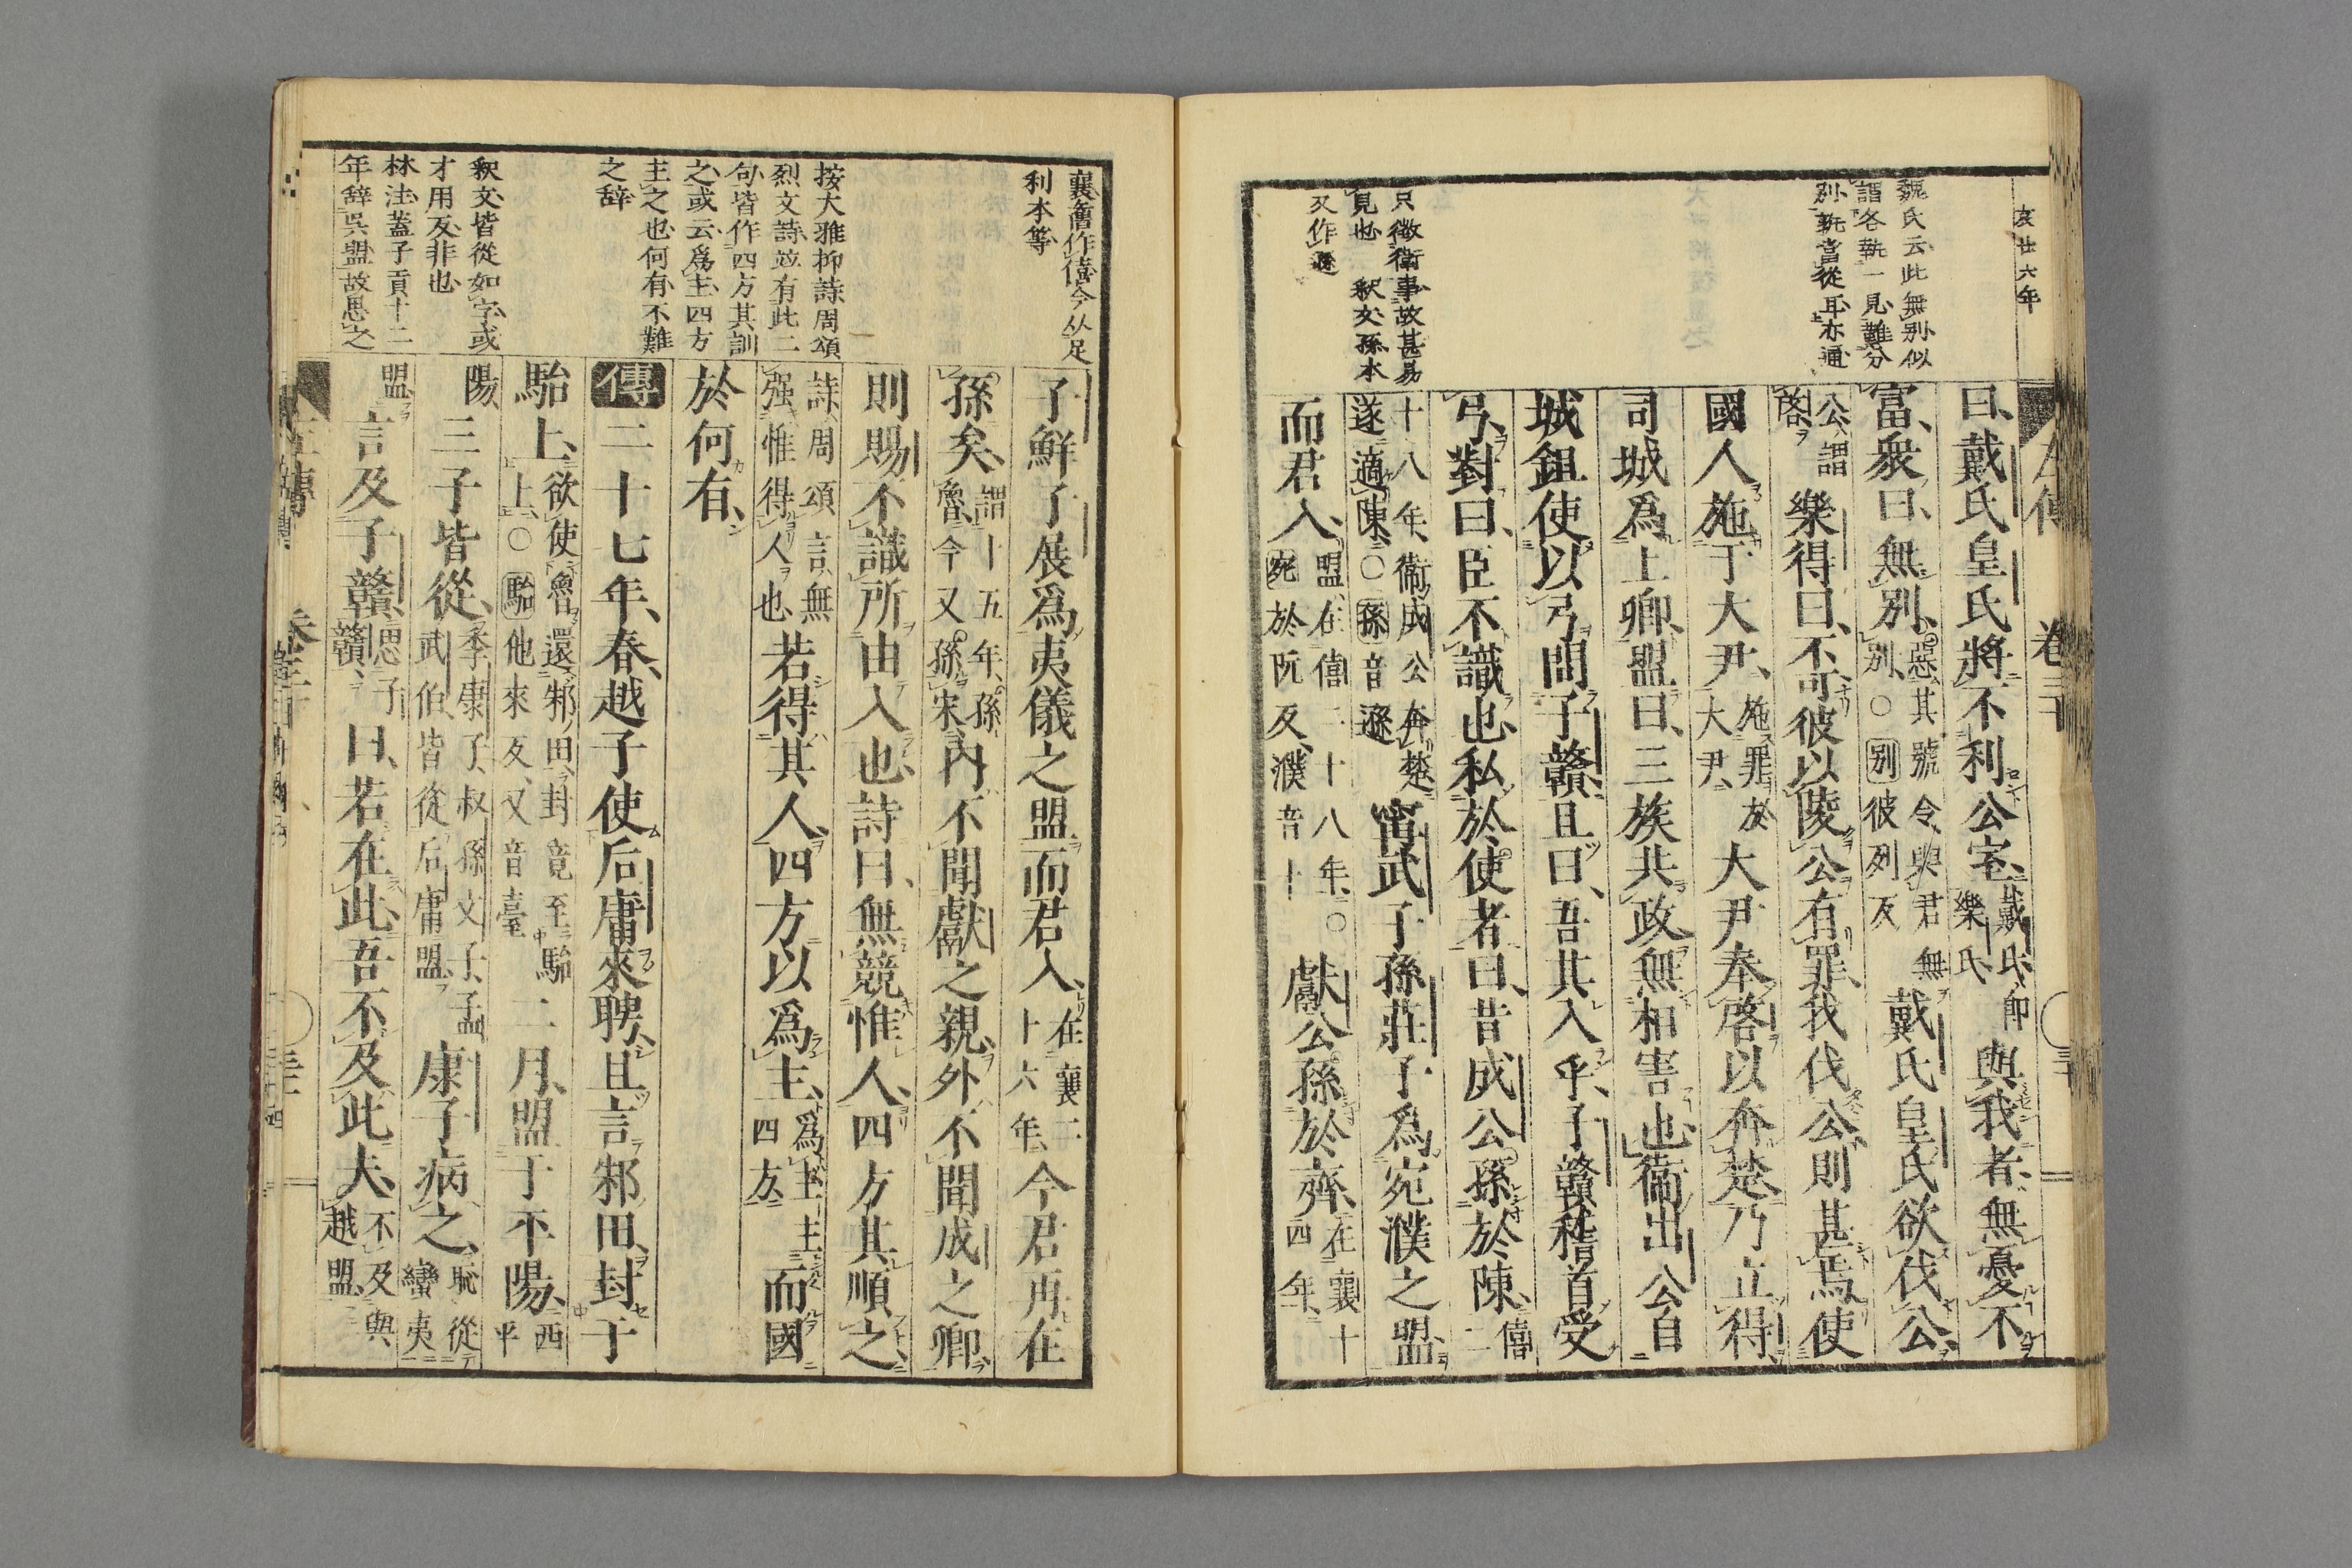 哀廿六年
魏氏云此無別似
謂各執一見難分
別執當從耳亦通
只徵衛事故甚易
見也 釈文孫本
又作遜
曰戴氏皇氏將不利公室戴氏卽樂氏與我者無憂不
富衆曰無別惡其號令與君無別○別彼列反戴氏皇氏欲伐公
公謂啓樂得曰不可彼以陵公有罪我伐公則甚焉使
國人施于大尹施罪於大尹大尹奉啓以奔楚乃立得
司城爲上卿盟曰三族共政無相害也衛出公自
城鉏使以弓問子贛且曰吾其入乎子贛稽首受
弓對曰臣不識也私於使者曰昔成公孫於陳僖二
十八年衞成公奔楚遂適陳○孫音遜甯武子孫莊子爲宛濮之盟
而君入盟在僖二十八年○宛於阮反濮音卜獻公孫於齊在襄十四年
襄僖作僖今从足
利本等
按大雅抑詩周頌
烈文詩並有此二
句皆作四方其訓
之或云爲主四方
主之也何有不難
之辭
釈文皆從如字或
才用反非也
林注蓋子貢十二
年辞吳盟故思之
子鮮子展爲夷儀之盟而君入在襄二十六年今君再在
孫矣謂十五年孫魯今又孫宋內不聞獻之親外不聞成之卿
則賜不識所由入也詩曰無競惟人四方其順之
詩周頌言無强惟得人也若得其人四方以爲主爲主主四方而國
於何有
傳二十七年春越子使后庸來聘且言邾田封于
駘上欲使魯還邾田封竟至駘上○駘他來反又音臺二月盟于平陽西平
陽三子皆從季康子叔孫文子孟武伯皆從后庸盟康子病之恥從蠻夷
盟言及子贛思子贛曰若在此吾不及此夫不及與越盟